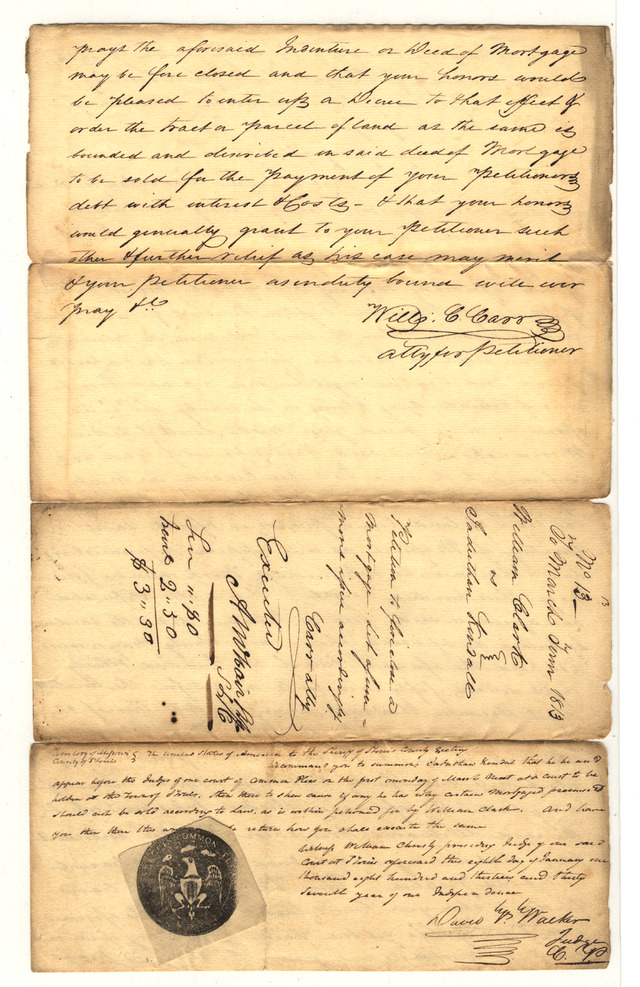 prays the aforesaid Indenture or Deed of Mortgage
may be fore closed and that your honors would
be pleased to enter up a Decree to that effect &
order the tract or parcel of land as the same is
bounded and discribed in said deed of Mortgage
to be sold for the payment of your Petitioners
debt with interest & Costs – & that your honors
would generally grant to your Petitioner such
other & further relief as his case may merit
& your Petitioner as in duty bound will ever
pray &c
Will. C. Carr
atty for Petitioner
13
No 13
To March Term 1813
William Clark
vs
Kendall
Petition to foreclose a
mortgage let a
accordingly
Carr atty
Executed
2.50
$ 3.30
Territory of Missouri
County of St Louis
The United States of America to the Sheriff of St Louis County Greeting
We command you to summon Kendall that he be and
appear before the Judge of our court of Common Pleas on the first monday of March Next at a court to be
holden at the Town of St Louis, then there to shew cause if any he has why certain Mortgaged premises
should not be sold according to law, as is within petitioned for by William Clark. And have
you then there this to return how you shall execute the same
Witness William Christy presiding Judge of our said
Court at St Louis aforesaid this eighth day of January one
thousand eight hundred and thirteen and thirty
seventh year of our Independence
COMMON
David Walker
Judge
C. C. P.